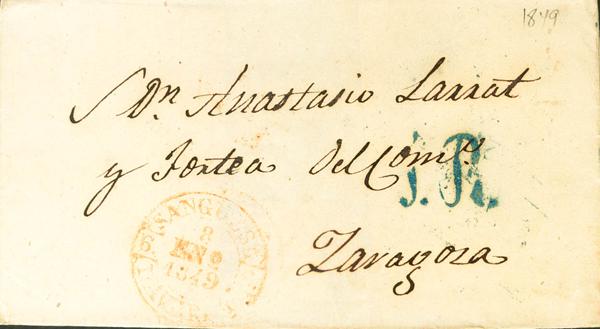 1849
S Dn. Anastasio Larrat
y Fortea Del Comº.
1. R.
Zaragoza
SANGUESA
8
ENO
1849